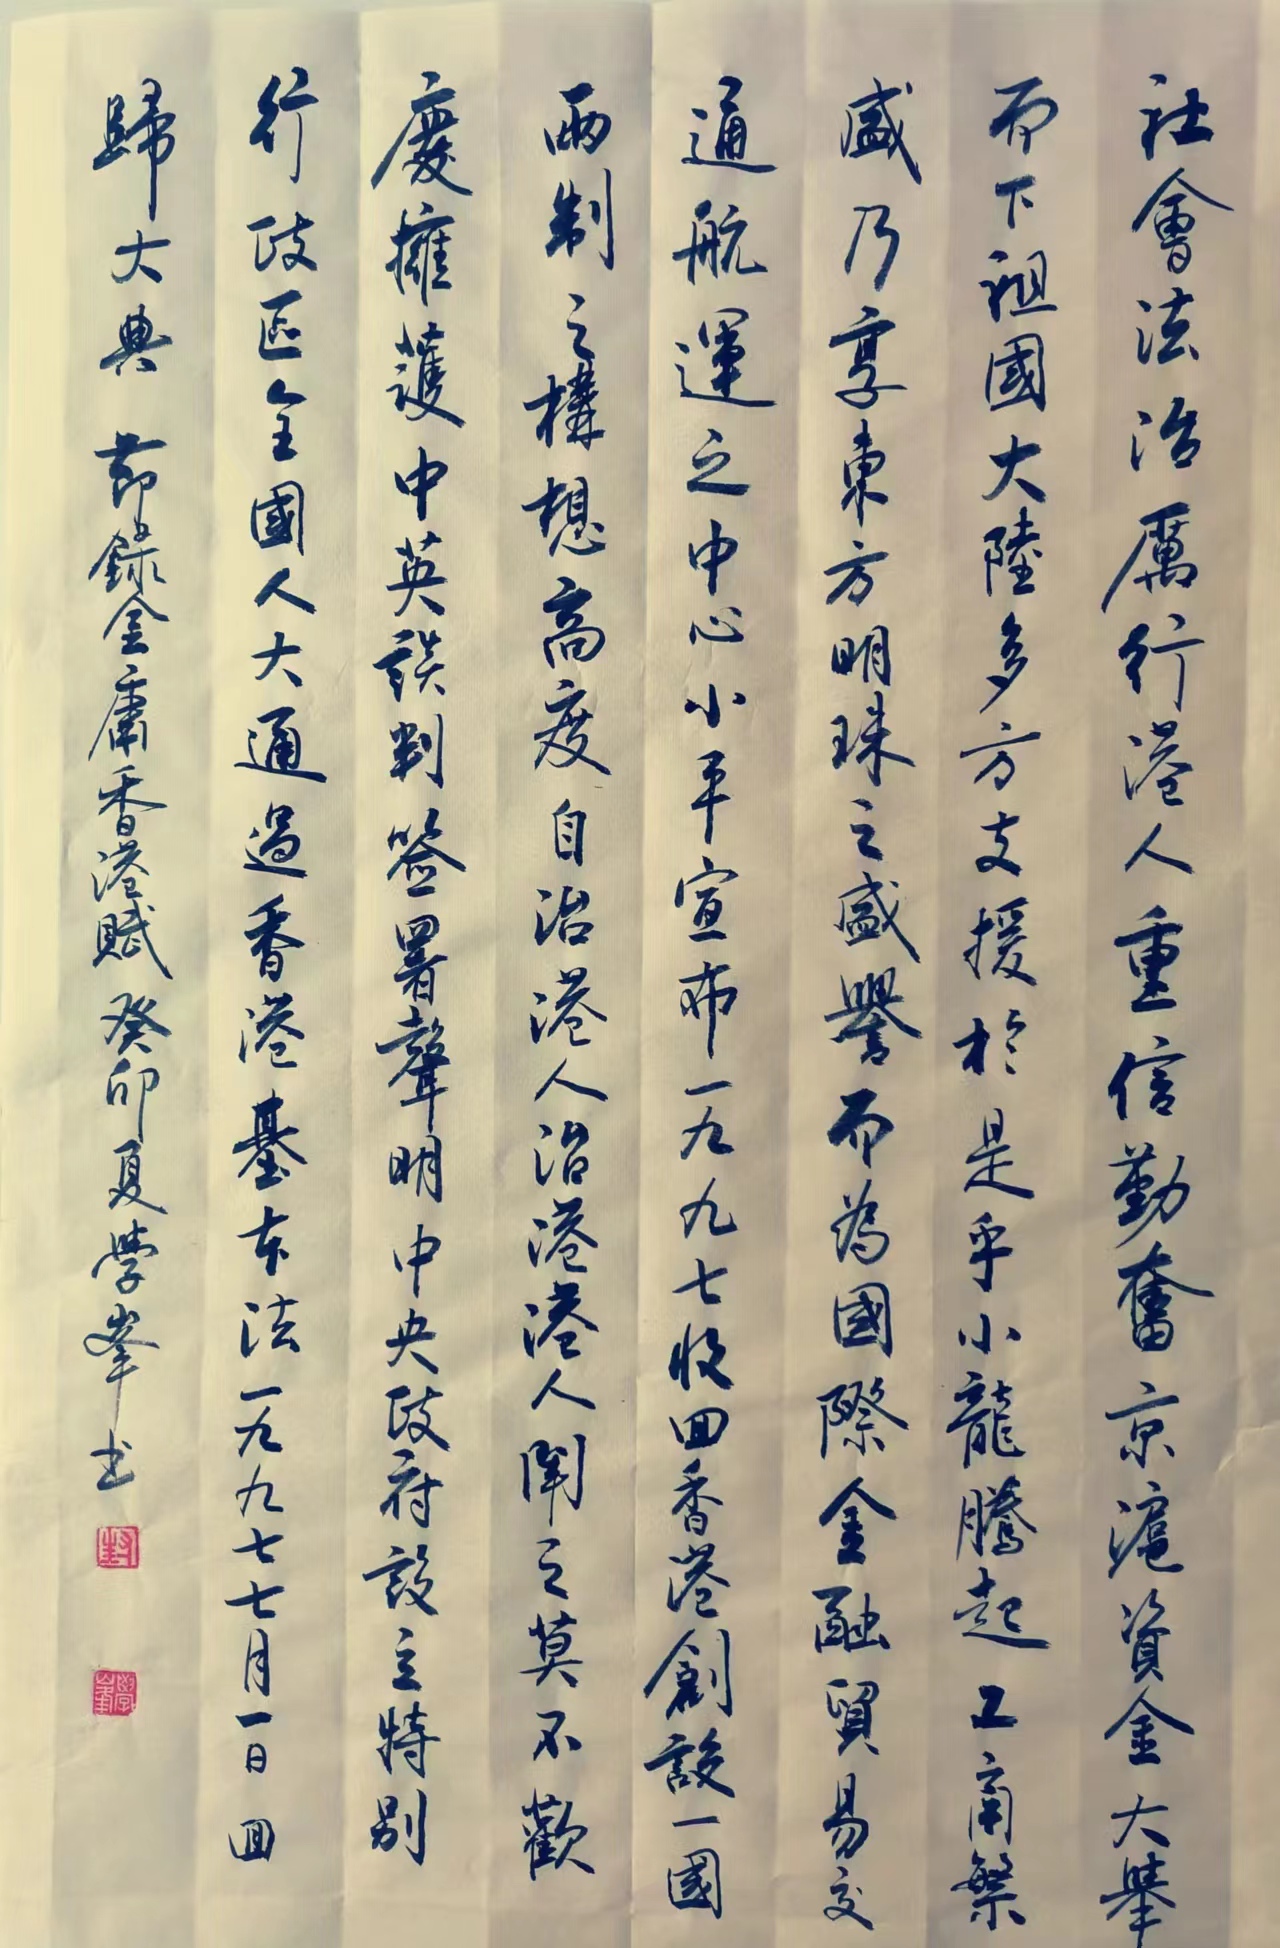 社會法治厲行港人重信勤奮京滬資金大舉
而下祖國大陸多方支援於是乎小龍騰起工商繁
盛乃享東方明珠之盛譽而為國際金融貿易交
通航運之中心小平宣布一九九七收回香港創設一國
兩制之構想高度自治港人治港港人聞之莫不歡
慶擁護中英談判簽署聲明中央政府設立特別
行政區全國人大通過香港基本法一九九七七月一日回
歸大典 節錄金庸香港賦 癸卯夏學峯书
封
學峯